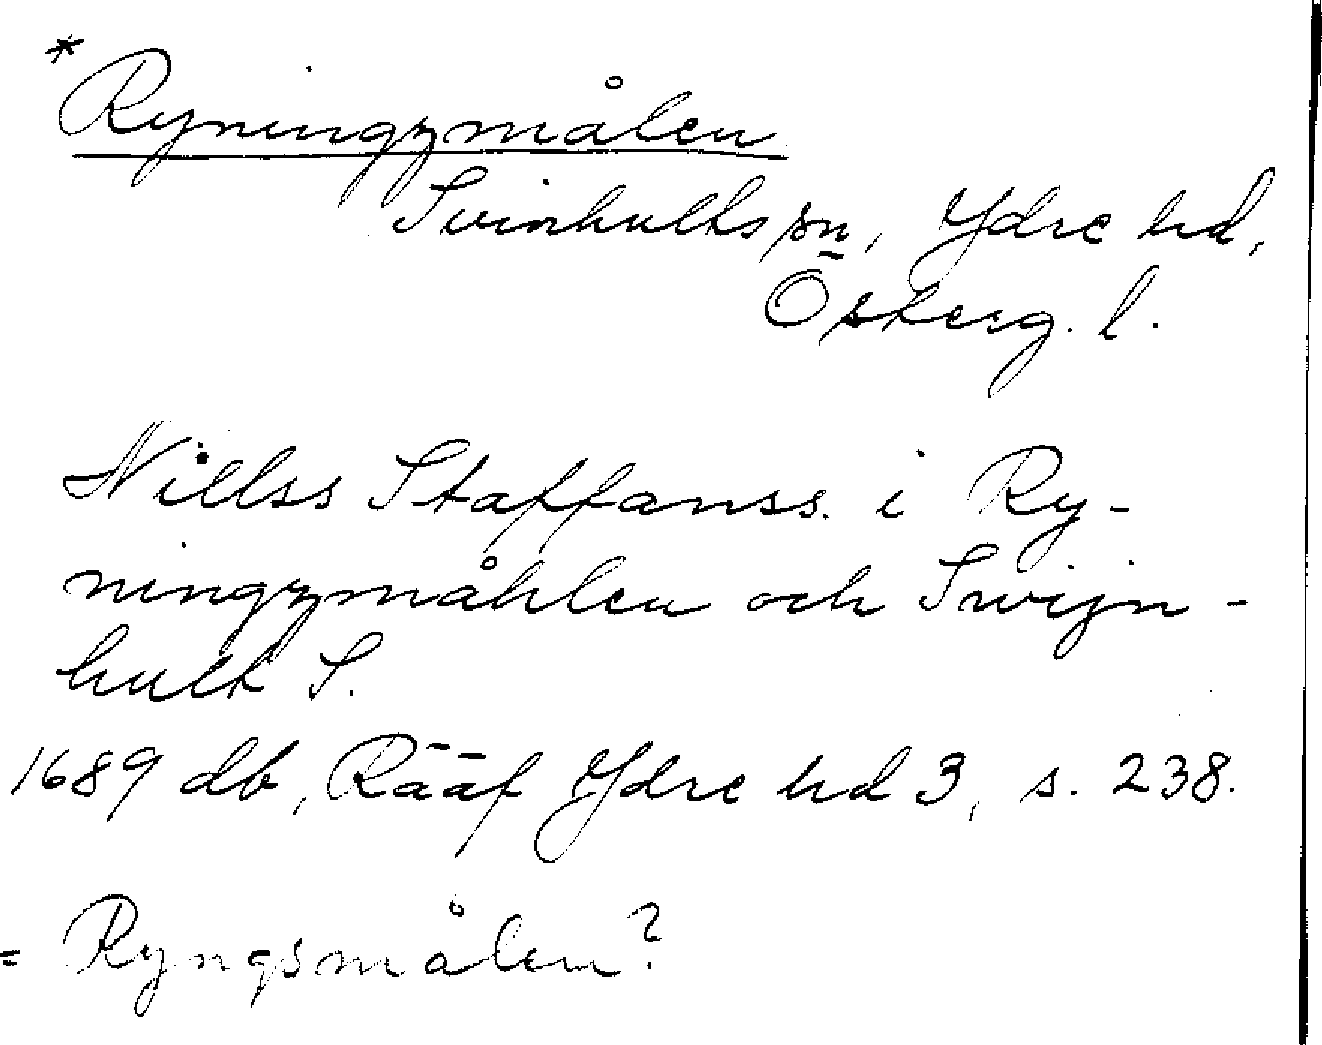 *Ryningzmålen
Svinhults sn, Ydre hd,
Österg. l.
Nillss Staffanss. i Ry-
ningzmåhlen och Swijn-
hult S.
1689 db, Rääf Ydre hd 3, s. 238.
= Ryngsmålen?